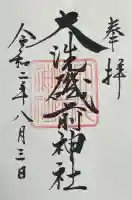 奉拝
大洗磯前神社
令和二年八月三日